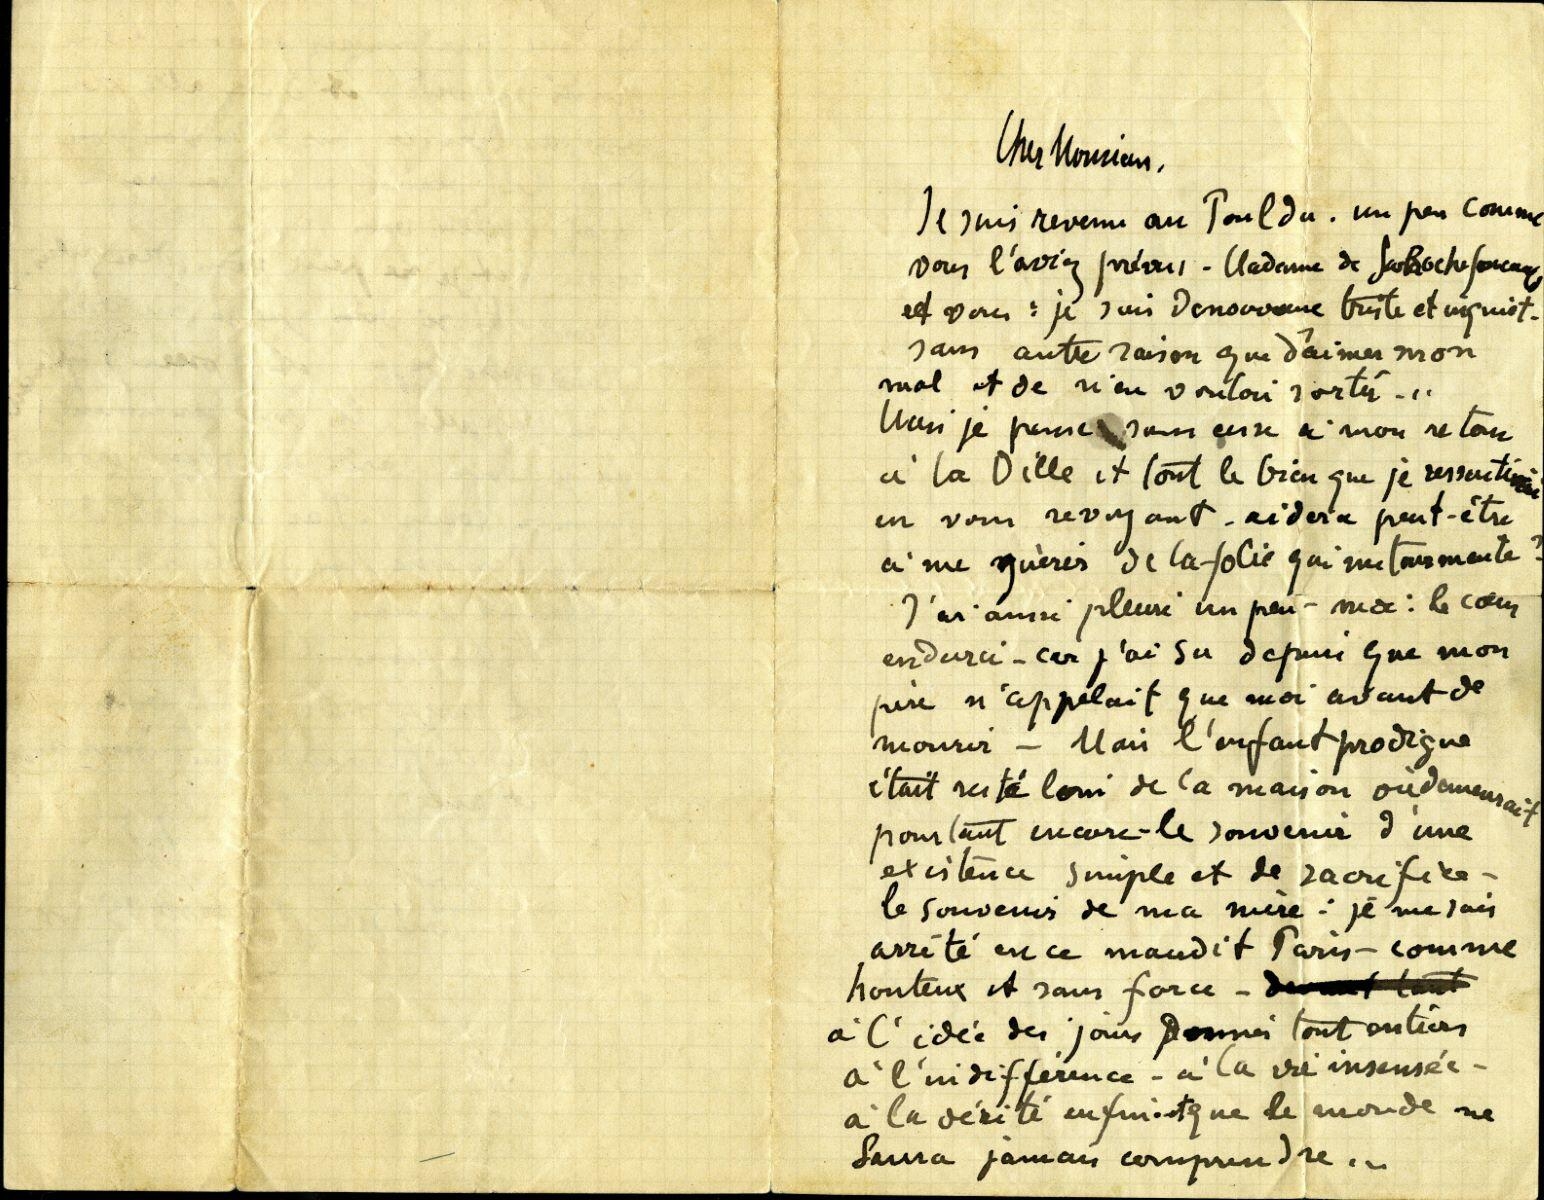 Cher Monsieur,
Je suis revenu au Pouldu. un peu comme
vous l'aviez prévu - Madame de LaRochefoucauld
et vous : je suis de nouveau triste et inquiet.
sans autre raison que d'aimer mon
mal et de n'en vouloir sortir ...
Mais je pense sans cesse à mon retour
à la Ville et tout le bien que je ressentirai
en vous revoyant - aidera peut-être
à me guérir de la folie qui me tourmente ?
J'ai aussi pleuré un peu - moi : le cœur
endurci - car j'ai su depuis que mon
père n'appelait que moi avant de
mourir - Mais l'enfant prodigue
était resté loin de la maison où demeurait
pourtant encore - le souvenir d'une
existence simple et de sacrifice -
le souvenir de ma mère : je me suis
arrêté en ce maudit Paris - comme
honteux et sans force - devant tant
à l'idée des jours donnés tout entiers
à l'indifférence - à la vie insensée -
à la vérité enfin que le monde ne
saura jamais comprendre ...